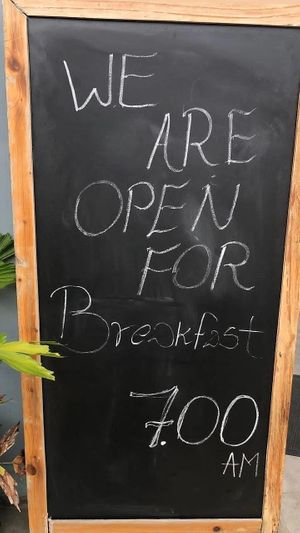 WE
ARE
OPEN
FOR
Breakfast
7.00
AM